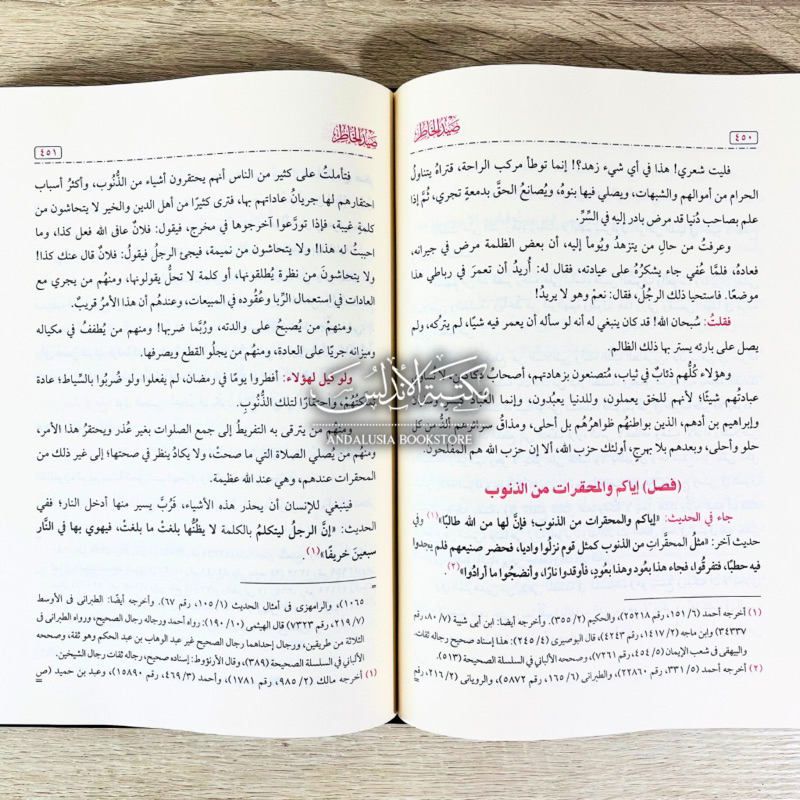 ٤٥٠
صيد الخاطر
فليت شعري! هذا في أي شيء زهد؟! إنما توطأ مركب الراحة، فتراه يتناول
الحرام من أموالهم والشبهات، ويصلي فيها بنوه، ويصانع الحق بدمعةٍ تجري، ثُمَّ إذا
علم بصاحب دُنيا قد مرض بادر إليه في السِّرِّ.
وعرفتُ من حالِ من يتزهدُ ويُومأ إليه، أن بعض الظلمة مرض في جيرانه،
فعادهُ، فلمَّا عُفي جاء يشكرُهُ على عيادته، فقال له: أُريدُ أن تعمرَ في رباطي هذا
موضعًا. فاستحيا ذلك الرجُلُ، فقال: نعمْ وهو لا يريدُ!
فقلتُ: سُبحان الله! قد كان ينبغي له أنه لو سأله أن يعمر فيه شيئًا، لم يتركه، ولم
يصل على بارئه يستر بها ذلك الظالم.
وهؤلاء كُلُّهم ذئابٌ في ثياب، مُتصنعون بزهادتهم، أصحابُ
عبادتُهم شيئًا؛ لأنهم للخق يعملون، وللدنيا يعبُدون، وإنما العباد
وإبراهيم بن أدهم، الذين بواطنُهم ظواهرُهُم بل أحلى، ومذاقُ سرائرهم ألذُّ من كل
حلو وأحلى، وبعدهم بلا بهرجٍ، أولئك حزب الله، ألا إن حزب الله هم المفلحون.
(فصل) إياكم والمحقرات من الذنوب
جاء في الحديث: «إياكم والمحقرات من الذنوب؛ فإنَّ لها من الله طالبًا»(١) وفي
حديث آخر: «مثلُ المحقَّراتِ من الذنوب كمثل قوم نزلُوا واديا، فحضر صنيعهم فلم يجدوا
فيه حطبًا، فتفرقُوا، فجاء هذا بعُود وهذا بعُودٍ، فأوقدوا نارًا، وأنضجُوا ما أرادُوا»(٢).
(١) أخرجه أحمد (٦/ ١٥١، رقم ٢٥٢١٨)، والحكيم (٢/ ٣٥٥). وأخرجه أيضا: ابن أبي شيبة (٧/ ٨٠، رقم
٣٤٣٣٧) وابن ماجه (٢/ ١٤١٧، رقم ٤٢٤٣) قال البوصيري (٤/ ٢٤٥): هذا إسناد صحيح رجاله ثقات.
والبيهقى فى شعب الإيمان (٥/ ٤٥٤، رقم ٧٢٦١)، وصححه الألباني في السلسلة الصحيحة (٥١٣).
(٢) أخرجه أحمد (٥/ ٣٣١، رقم ٢٢٨٦٠)، والطبرانى (٦/ ١٦٥، رقم ٥٨٧٢)، والرويانى (٢/ ٢١٦، رقم
صيد الخاطر
٤٥١
فتأملتُ على كثير من الناس أنهم يحتقرون أشياء من الذُّنُوب، وأكثرُ أسباب
احتقارهم لها جريانُ عاداتهم بها، فترى كثيرًا من أهل الدين والخير لا يتحاشون من
كلمةِ غيبة، فإذا تورَّعوا أخرجوها في مخرج، فيقول: فلانٌ عافى الله فعل كذا، وما
احببتُ له هذا! ولا يتحاشون من نميمة، فيجئ الرجلُ فيقولُ: فلانٌ قال عنك كذا!
ولا يتحاشونَ من نظرة يُطلقونها، أو كلمة لا تحلُّ يقولونها، ومنهُم من يجري مع
العادات في استعمال الرِّبا وعُقُوده في المبيعات، وعندهُم أن هذا الأمرُ قريبٌ.
ومنهمُ من يُصبحُ على والدته، ورُبَّما ضربها! ومنهم من يُطففُ في مكياله
وميزانه جريًا على العادة، ومنهُم من يجلُو القطع ويصرفها.
ولو قيل لهؤلاء: أفطروا يومًا في رمضان، لم يفعلوا ولو ضُربُوا بالسِّياط؛ عادة
واحتقارًا لتلك الذُّنُوبِ.
ومنهُم من يترقى به التفريطُ إلى جمع الصلوات بغير عُذر ويحتقرُ هذا الأمر،
ومنهُم من يُصلي الصلاة التي ما صحتْ، ولا يكادُ ينظر في صحتها؛ إلى غير ذلك من
المحقرات عندهم، وهي عند الله عظيمة.
فينبغي للإنسان أن يحذر هذه الأشياء، فرُبَّ يسير منها أدخل النار؛ ففي
الحديث: «إنَّ الرجلُ ليتكلمُ بالكلمة لا يظُنُّها بلغتْ ما بلغتْ، فيهوي بها في النَّار
سبعين خريفًا»(١).
=
١٠٦٥)، والرامهزى فى أمثال الحديث (١/ ١٠٥، رقم ٦٧). وأخرجه أيضًا: الطبرانى فى الأوسط
(٧/ ٢١٩، رقم ٧٣٢٣) قال الهيثمى (١٠/ ١٩٠): رواه أحمد ورجاله رجال الصحيح، ورواه الطبرانى فى
الثلاثة من طريقين، ورجال إحداهما رجال الصحيح غير عبد الوهاب بن عبد الحكم وهو ثقة، وصححه
الألباني في السلسلة الصحيحة (٣٨٩)، وقال الأرنؤوط: إسناده صحيح، رجاله ثقات رجال الشيخين.
(١) أخرجه مالك (٢/ ٩٨٥، رقم ١٧٨١)، وأحمد (٣/ ٤٦٩، رقم ١٥٨٩٠)، وعبد بن حميد (ص
=
مكتبة الأندلس
ANDALUSIA BOOKSTORE